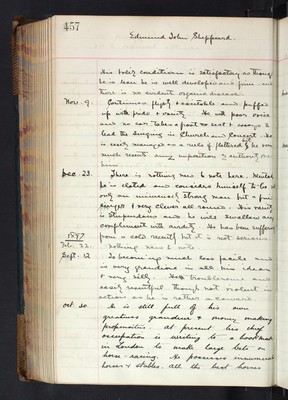 457
Edmund John Sheppard.
His bodily condition is satisfactory as though
he is lean he is well developed and firm and
there is no evident organic disease
Nov. 9. Continues flighty & excitable and puffed
up with pride & vanity. He with poor voice
and no ear takes a front seat & essays to
lead the singing in Church and Concert. He
is easily managed as a rule if flattered & he very
much resents any imposition of authority over
him
Dec. 23. There is nothing new to note here. Mentally
he is elated and considers himself to be not
only an immensely strong man but a fine
singer & very clever all round. His vanity
is stupendous and he will swallow any
compliment with avidity. He has been suffering
from a cold recently but it is not serious.
1897
Feb. 22. Nothing new to note.
Sept. 12 Is becoming much less facile and
is very grandiose in all his ideas
& very silly. Is troublesome and
easily resentful though not violent in
action as he is rather a coward.
Oct. 30. He is still full of his own
greatness grandeur & money making
propensities. At present his chief
occupation is writing to a bookmaker
in London to make large bets on
horse-racing. He possesses innumerable
horses & stables. All the best horses